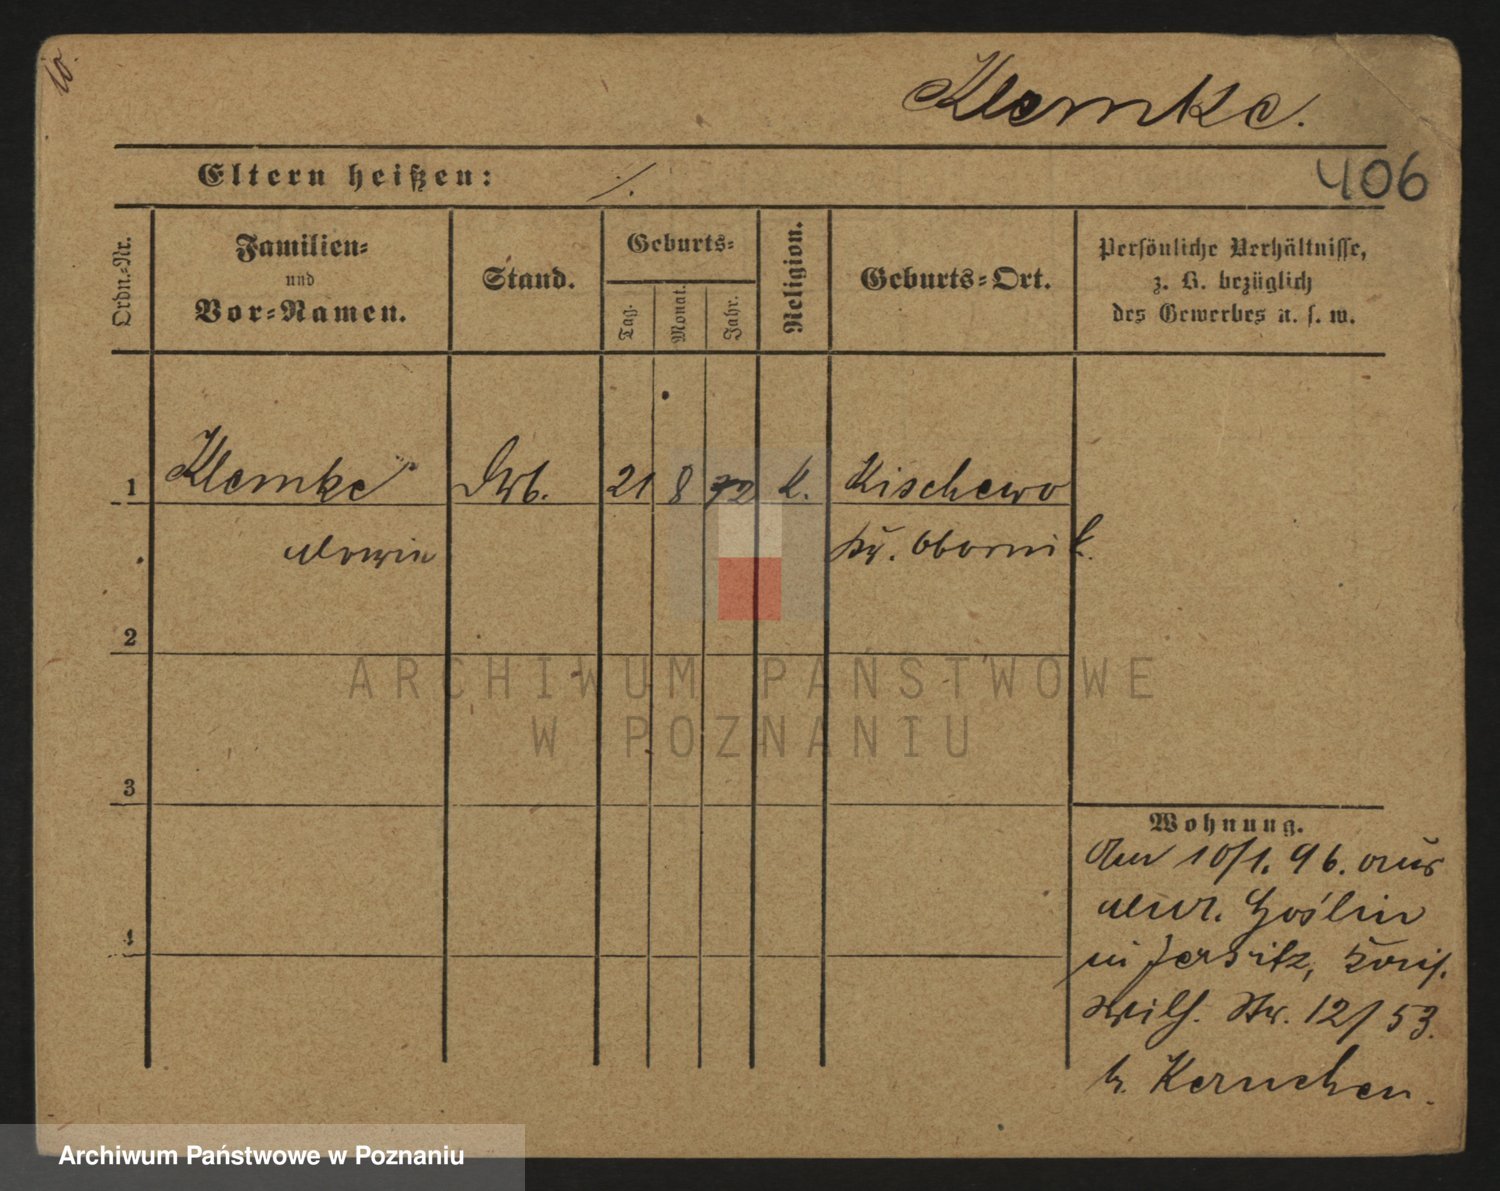 10.
Klemke.
406
Eltern heißen: ·/.
Ordn.-Nr.
Familien-
und
Vor-Namen.
Stand.
Geburts-
Tag.
Monat.
Jahr.
Religion.
Geburts-Ort.
Persönliche Verhältnisse,
z. B. bezüglich
des Gewerbes u. s. w.
1 Klemke Arb. 21 8 72 k. Kischewo
Kr. Obornik.
2
3
4
Wohnung.
Am 10/1. 96. aus
Mur. Goślin
in Jersitz,
Wilh. Str. 12/53.
b. Kernchen.
ARCHIWUM PAŃSTWOWE
W POZNANIU
Archiwum Państwowe w Poznaniu